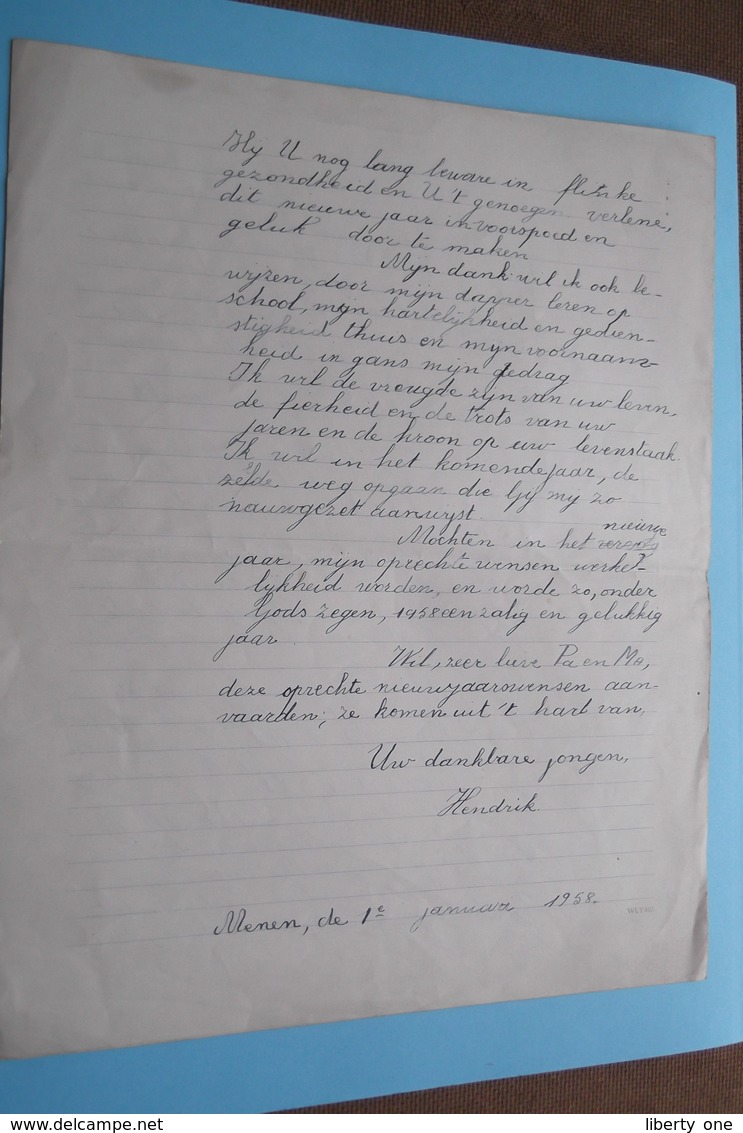 Hij U nog lang beware in flinke
gezondheid en U 't genoegen verlene,
dit nieuwe jaar in voorspoed en
geluk door te maken
Mijn dank wil ik ook be-
wijzen, door mijn dapper leren op
school, mijn hartelijkheid en gedien-
stigheid thuis en mijn voornaam-
heid in gans mijn gedrag
Ik wil de vreugde zijn van uw leven,
de fierheid en de trots van uw
jaren en de kroon op uw levenstaak.
Ik wil in het komende jaar, de
zelfde weg opgaan die Gij mij zo
nauwgezet aanwijst.
Mochten in het nieuwe
jaar, mijn oprechte wensen werke-
lijkheid worden, en worde zo, onder
Gods zegen, 1958 een zalig en gelukkig
jaar.
Wil, zeer lieve Pa en Ma,
deze oprechte nieuwjaarswensen aan-
vaarden; ze komen uit 't hart van,
Uw dankbare jongen,
Hendrik.
Menen, de 1e januari 1958.
delcampe.net
liberty one